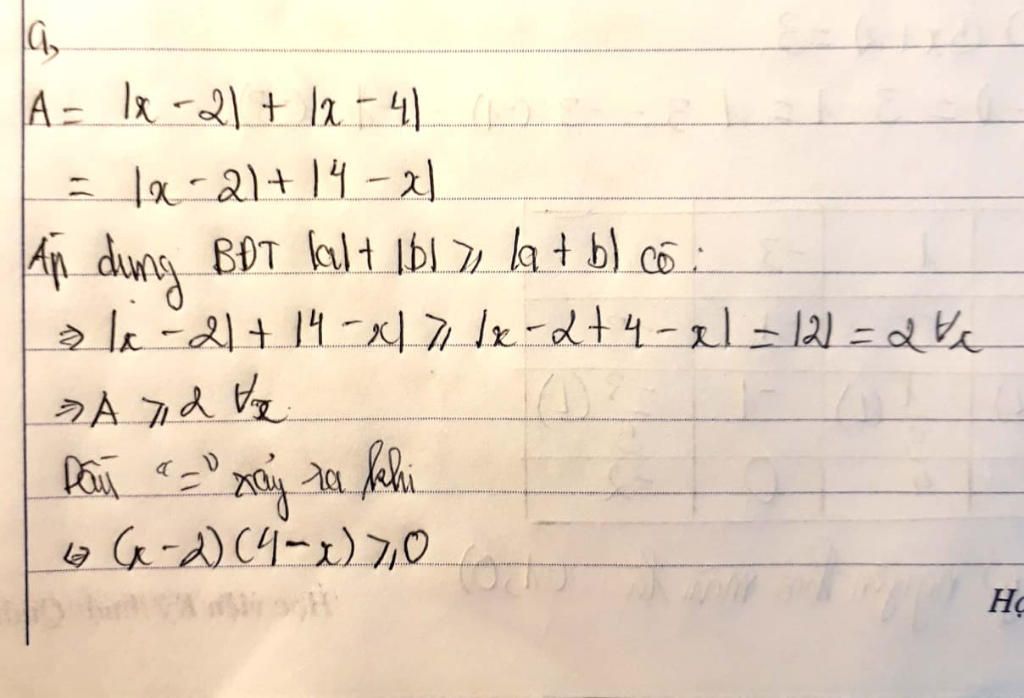 a,
A = |x - 2| + |x - 4|
= |x - 2| + |4 - x|
Áp dụng BĐT |a| + |b| ⩾ |a + b| có:
⇒ |x - 2| + |4 - x| ⩾ |x - 2 + 4 - x| = |2| = 2 ∀x
⇒ A ⩾ 2 ∀x.
Dấu "=" xảy ra khi
⇔ (x - 2)(4 - x) ⩾ 0
Họ